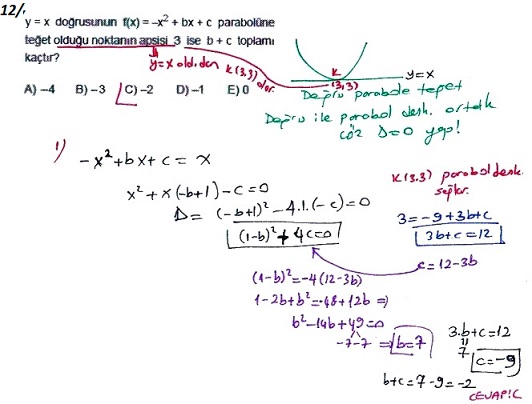 12/.
y = x doğrusunun f(x) = –x² + bx + c parabolüne
teğet olduğu noktanın apsisi 3 ise b + c toplamı
kaçtır?
y=x olduğundan K(3,3) olur.
A) –4 B) –3 C) –2 D) –1 E) 0
K
(3,3)
y=x
Doğru parabole teğet
Doğru ile parabol denk. ortak
çöz Δ=0 yap!
1)
-x²+bx+c = x
x²+x(-b+1)-c=0
Δ= (-b+1)²-4.1.(-c)=0
(1-b)²+4c=0
K(3,3) parabol denk.
sağlar.
3=-9+3b+c
3b+c=12
c=12-3b
(1-b)²=-4(12-3b)
1-2b+b²=-48+12b ⇒
b²-14b+49=0
-7 -7 ⇒ b=7
3.b+c=12
7
c=-9
b+c=7-9=-2
CEVAP:C